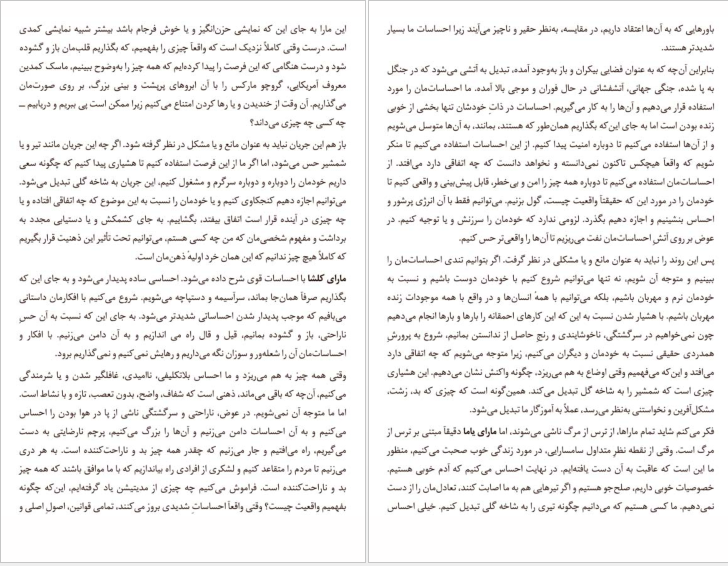 این مارا به جای این که نمایشی حزن‌انگیز و یا خوش فرجام باشد بیشتر شبیه نمایشی کمدی
است. درست وقتی کاملاً نزدیک است که واقعاً چیزی را بفهمیم، که بگذاریم قلب‌مان باز و گشوده
شود و درست هنگامی که این فرصت را پیدا کرده‌ایم که همه چیز را به‌وضوح ببینیم، ماسک کمدین
معروف آمریکایی، گروچو مارکس را با آن ابروهای پرپشت و بینی بزرگ، بر روی صورت‌مان
می‌گذاریم. آن وقت از خندیدن و یا رها کردن امتناع می‌کنیم زیرا ممکن است پی ببریم و دریابیم ــ
چه کسی چه چیزی می‌داند؟
باز هم این جریان نباید به عنوان مانع و یا مشکل در نظر گرفته شود. اگر چه این جریان مانند تیر و یا
شمشیر حس می‌شود، اما اگر ما از این فرصت استفاده کنیم تا هشیاری پیدا کنیم که چگونه سعی
داریم خودمان را دوباره و دوباره سرگرم و مشغول کنیم، این جریان به شاخه گلی تبدیل می‌شود.
می‌توانیم اجازه دهیم کنجکاوی کنیم و یا خودمان را نسبت به این موضوع که چه اتفاقی افتاده و یا
چه چیزی در آینده قرار است اتفاق بیفتد، بگشاییم. به جای کشمکش و یا دستیابی مجدد به
برداشت و مفهوم شخصی‌مان که من چه کسی هستم، می‌توانیم تحت تأثیر این ذهنیت قرار بگیریم
که کاملاً هیچ چیز ندانیم که این همان خرد اولیهٔ ذهن‌مان است.
مارای کلشا با احساسات قوی شرح داده می‌شود. احساسی ساده پدیدار می‌شود و به جای این که
بگذاریم صرفاً همان‌جا بماند، سرآسیمه و دستپاچه می‌شویم. شروع می‌کنیم با افکارمان داستانی
می‌بافیم که موجب پدیدار شدن احساساتی شدیدتر می‌شود. به جای این که نسبت به آن حسِ
ناراحتی، باز و گشوده بمانیم، قیل و قال راه می اندازیم و به آن دامن می‌زنیم. با افکار و
احساسات‌مان آن را شعله‌ور و سوزان نگه می‌داریم و رهایش نمی‌کنیم و نمی‌گذاریم برود.
وقتی همه چیز به هم می‌ریزد و ما احساس بلاتکلیفی، ناامیدی، غافلگیر شدن و یا شرمندگی
می‌کنیم، آن‌چه که باقی می‌ماند، ذهنی است که شفاف، واضح، بدون تعصب، تازه و با نشاط است.
اما ما متوجه آن نمی‌شویم. در عوض، ناراحتی و سرگشتگی ناشی از پا در هوا بودن را احساس
می‌کنیم و به آن احساسات دامن می‌زنیم و آن‌ها را بزرگ می‌کنیم، پرچم نارضایتی به دست
می‌گیریم، راه می‌افتیم و جار می‌زنیم که چقدر همه چیز بد و ناراحت‌کننده است. به هر دری
می‌زنیم تا مردم را متقاعد کنیم و لشکری از افرادی راه بیاندازیم که با ما موافق باشند که همه چیز
بد و ناراحت‌کننده است. فراموش می‌کنیم چه چیزی از مدیتیشن یاد گرفته‌ایم، این‌که چگونه
بفهمیم واقعیت چیست؟ وقتی واقعاً احساساتِ شدیدی بروز می‌کنند، تمامی قوانین، اصولِ اصلی و
باورهایی که به آن‌ها اعتقاد داریم، در مقایسه، به‌نظر حقیر و ناچیز می‌آیند زیرا احساسات ما بسیار
شدیدتر هستند.
بنابراین آن‌چه که به عنوان فضایی بیکران و باز به‌وجود آمده، تبدیل به آتشی می‌شود که در جنگل
به پا شده، جنگی جهانی، آتشفشانی در حال فوران و موجی بالا آمده. ما احساسات‌مان را مورد
استفاده قرار می‌دهیم و آن‌ها را به کار می‌گیریم. احساسات در ذاتِ خودشان تنها بخشی از خوبی
زنده بودن است اما به جای این‌که بگذاریم همان‌طور که هستند، بمانند، به آن‌ها متوسل می‌شویم
و از آن‌ها استفاده می‌کنیم تا دوباره امنیت پیدا کنیم. از این احساسات استفاده می‌کنیم تا منکر
شویم که واقعاً هیچکس تاکنون نمی‌دانسته و نخواهد دانست که چه اتفاقی دارد می‌افتد. از
احساسات‌مان استفاده می‌کنیم تا دوباره همه چیز را امن و بی‌خطر، قابل پیش‌بینی و واقعی کنیم تا
خودمان را در مورد این که حقیقتاً واقعیت چیست، گول بزنیم. می‌توانیم فقط با آن انرژی پرشور و
احساس بنشینیم و اجازه دهیم بگذرد. لزومی ندارد که خودمان را سرزنش و یا توجیه کنیم. در
عوض بر روی آتشِ احساسات‌مان نفت می‌ریزیم تا آن‌ها را واقعی‌تر حس کنیم.
پس این روند را نباید به عنوان مانع و یا مشکلی در نظر گرفت. اگر بتوانیم تندی احساسات‌مان را
ببینیم و متوجه آن شویم، نه تنها می‌توانیم شروع کنیم با خودمان دوست باشیم و نسبت به
خودمان نرم و مهربان باشیم، بلکه می‌توانیم با همهٔ انسان‌ها و در واقع با همه موجودات زنده
مهربان باشیم. با هشیار شدن نسبت به این که این کارهای احمقانه را بارها و بارها انجام می‌دهیم
چون نمی‌خواهیم در سرگشتگی، ناخوشایندی و رنج حاصل از ندانستن بمانیم، شروع به پرورشِ
همدردی حقیقی نسبت به خودمان و دیگران می‌کنیم، زیرا متوجه می‌شویم که چه اتفاقی دارد
می‌افتد و این‌که می‌فهمیم وقتی اوضاع به هم می‌ریزد، چگونه واکنش نشان می‌دهیم. این هشیاری
چیزی است که شمشیر را به شاخه گل تبدیل می‌کند. همین‌گونه است که چیزی که بد، زشت،
مشکل‌آفرین و نخواستنی به‌نظر می‌رسد، عملاً به آموزگار ما تبدیل می‌شود.
فکر می‌کنم شاید تمام ماراها، از ترس از مرگ ناشی می‌شوند، اما مارای یاما دقیقاً مبتنی بر ترس از
مرگ است. وقتی از نقطه نظرِ متداول سامسارایی، در مورد زندگی خوب صحبت می‌کنیم، منظور
ما این است که عاقبت به آن دست یافته‌ایم. در نهایت احساس می‌کنیم که آدم خوبی هستیم.
خصوصیات خوبی داریم، صلح‌جو هستیم و اگر تیرهایی هم به ما اصابت کنند، تعادل‌مان را از دست
نمی‌دهیم. ما کسی هستیم که می‌دانیم چگونه تیری را به شاخه گلی تبدیل کنیم. خیلی احساس